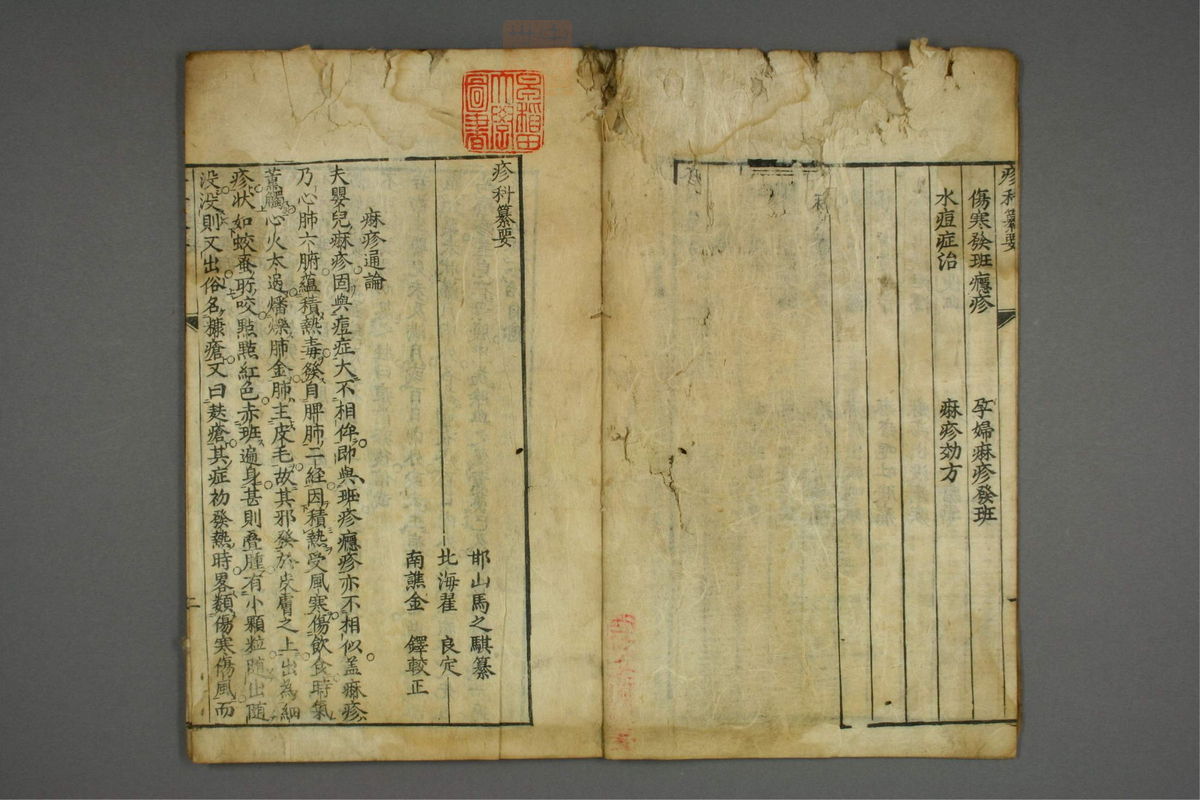 疹科纂要
傷寒發班癮疹　孕婦痳疹發班
水痘症治　痳疹効方
早稲田
大學
圖書
疹科纂要
邯山馬之騏纂
北海翟　良定
南譙金　鐸較正
痳疹通論
夫嬰兒痳疹固與痘症大不相侔即與班疹癮疹亦不相似盖痳疹
乃心肺六腑蘊積熱毒發自脾肺二経因積熱受風寒傷飲食時氣
薫觸心火太過燔爍肺金肺主皮毛故其邪發於皮膚之上出為細
疹状如蚊蚤所咬㸃㸃紅色赤班遍身甚則疊腫有小顆粒随出随
没没則又出俗名糠瘡又曰麩瘡其症初發熱時畧類傷寒傷風而